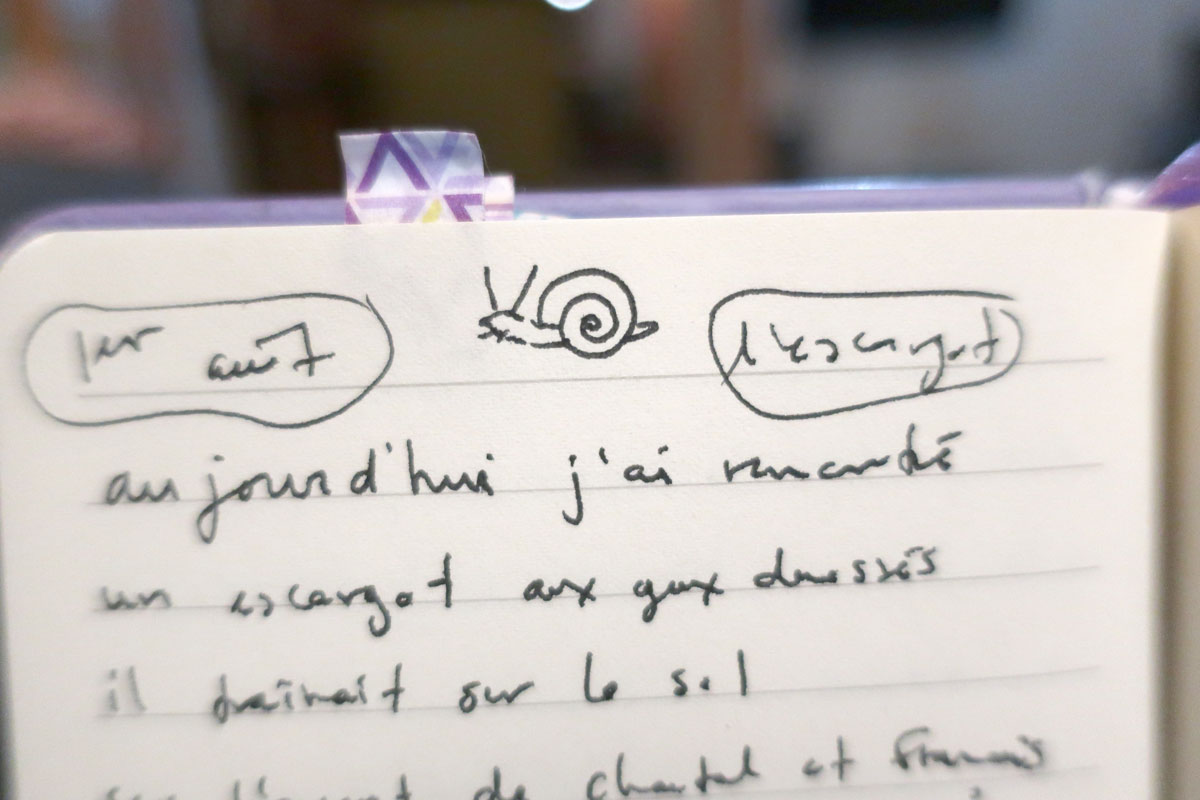 1er août
l'escargot
aujourd'hui j'ai rencontré
un escargot aux yeux dressés
il traînait sur le sol
de chantal et Francis